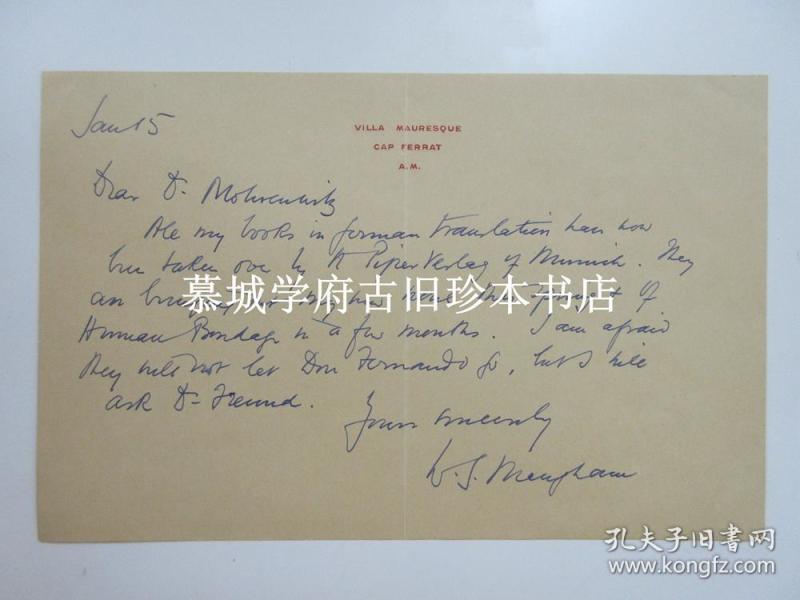 Jan 15
VILLA MAURESQUE
CAP FERRAT
A.M.
Dear Dr Mohrenwitz
All my books in German translation have now
been taken over by R Piper Verlag of Munich. They
are bringing out my new
Human Bondage in a few months. I am afraid
they will not let Don Fernando go, but I will
ask Dr Freund.
Yours sincerely
W. S. Maugham
慕城学府古旧珍本书店
孔夫子旧书网
www.kongfz.com